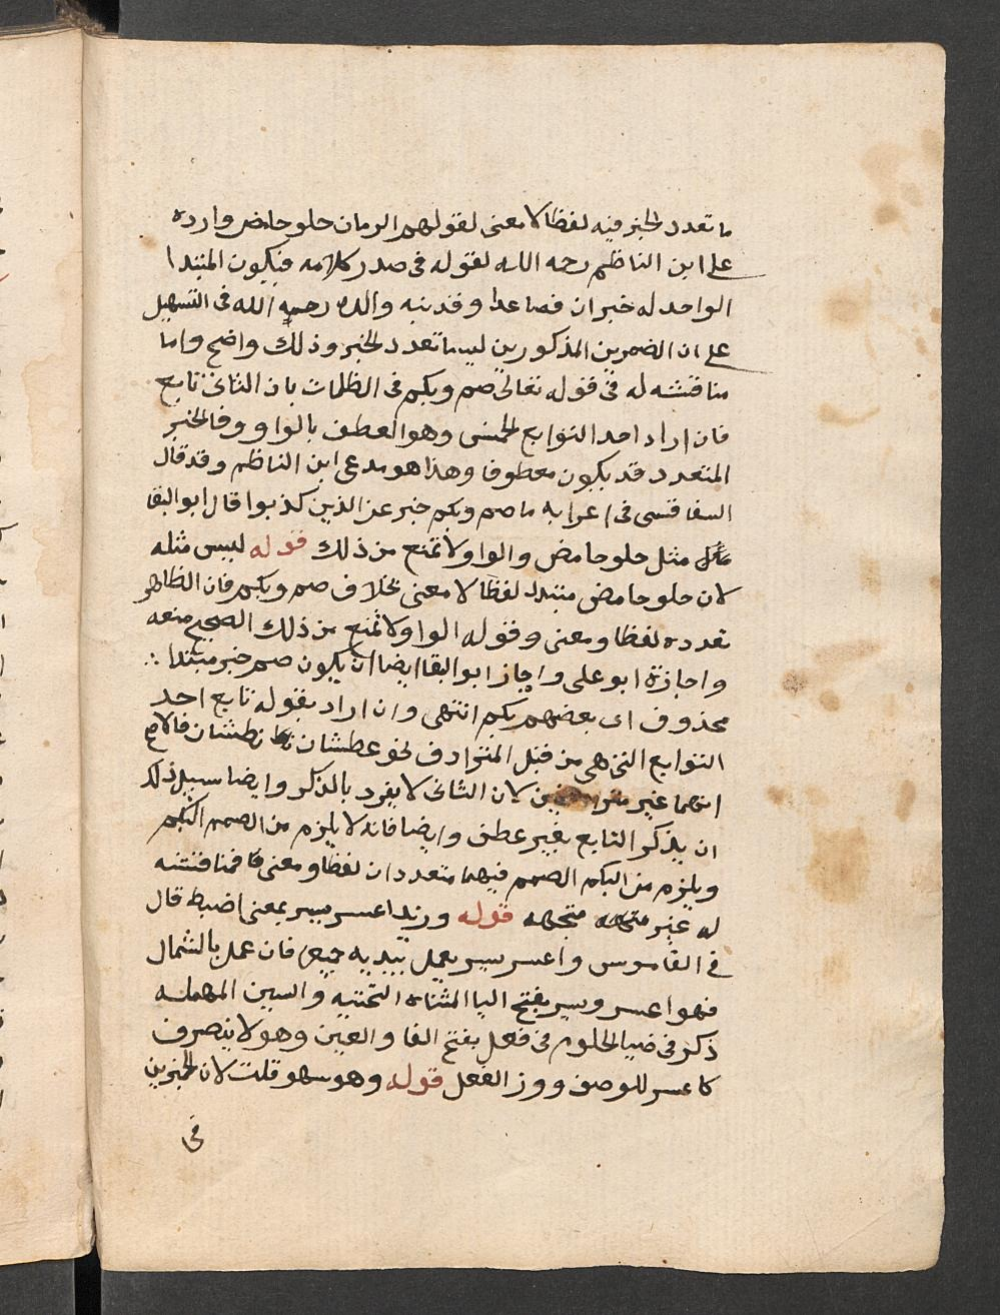 ما تعدد الخبر فيه لفظا لا معنى لقولهم الرمان حلو حامض وارده
على ابن الناظم رحمه الله لقوله في صدر كلامه فيكون المبتدا
الواحد له خبران فصاعدا وقد نبه والده رحمه الله في التسهيل
على ان الضربين المذكورين ليسا تعدد الخبر وذلك واضح واما
مناقشته له في قوله تعالى صم وبكم في الظلمات بان الثاني تابع
فان اراد احد التوابع الخمس وهو العطف بالواو وفالخبر
المتعدد قد يكون معطوفا وهذا هو مدعى ابن الناظم وقد قال
السفاقسي في اعرابه ما صم وبكم خبر عن الذين كذبوا قال ابو البقا
مثل حلو حامض والواو لا تمنع من ذلك قوله ليس مثله
لان حلو حامض متعدد لفظا لا معنى بخلاف صم وبكم فان الظاهر
تعدده لفظا ومعنى وقوله الواو لا تمنع من ذلك الصحيح منعه
واجازة ابو على واجاز ابو البقا ايضا ان يكون صم خبر مبتدا
محذوف اى بعضهم بكم انتهى وان اراد بقوله تابع احد
التوابع التي هي من قبل المترادف نحو عطشان نطشان فالاصح
انهما غير لان الثاني لا يفرد بالذكر وايضا سبيل ذلك
ان يذكر التابع بغير عطف وايضا فانه لا يلزم من الصمم البكم
ويلزم من البكم الصمم فيهما متعددان لفظا ومعنى فامناقشته
له غير متجهه قوله وزيد اعسر يسر بمعنى اضبط قال
في القاموس واعسر يسر يعمل بيديه جميعا فان عمل بالشمال
فهو اعسر ويسر بفتح اليا المثناه التحتيه والسين المهمله
ذكر في ضيا الحلوم في فعل بفتح الفا والعين وهو لا ينصرف
كاعسر للوصف ووزن الفعل قوله وهو سهو قلت لان الخبرين
في